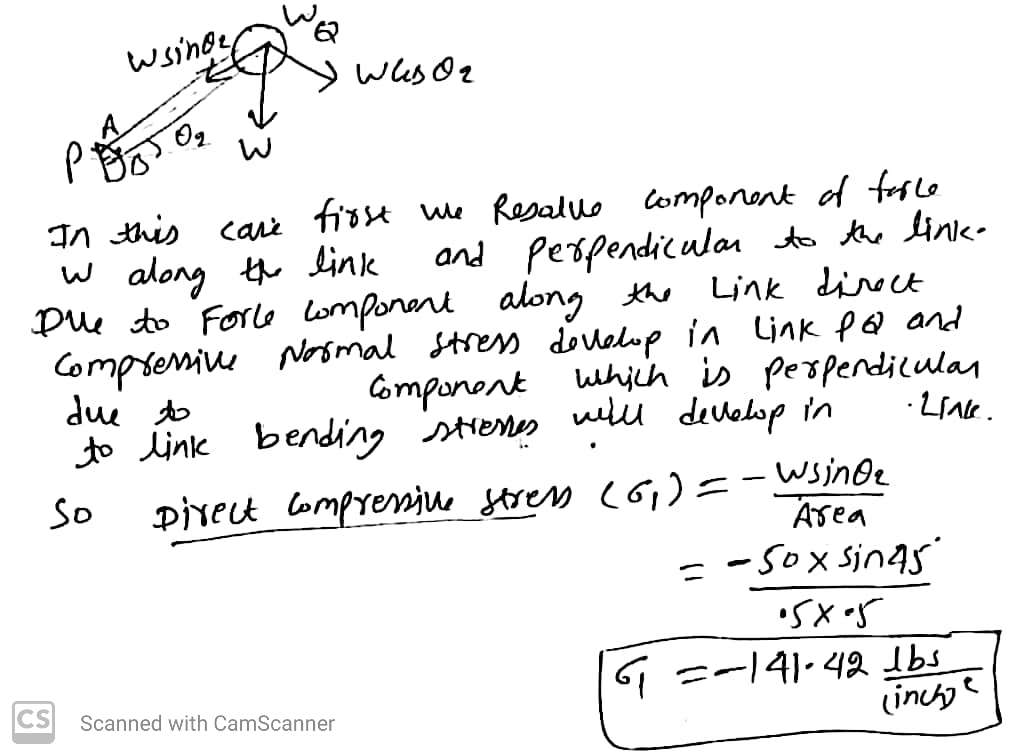 W
Q
W sinθ2
W cosθ2
A
P
B
θ2
W
In this case first we Resolve component of force
W along the link and perpendicular to the link.
Due to Force component along the Link direct
compressive Normal stress develop in Link PQ and
due to component which is perpendicular
to link bending stresses will develop in Link.
So Direct compressive stress (σ1) = - Wsinθ2
Area
= -50 x sin45°
.5 x .5
σ1 = -141.42 lbs
(inch)2
CS Scanned with CamScanner